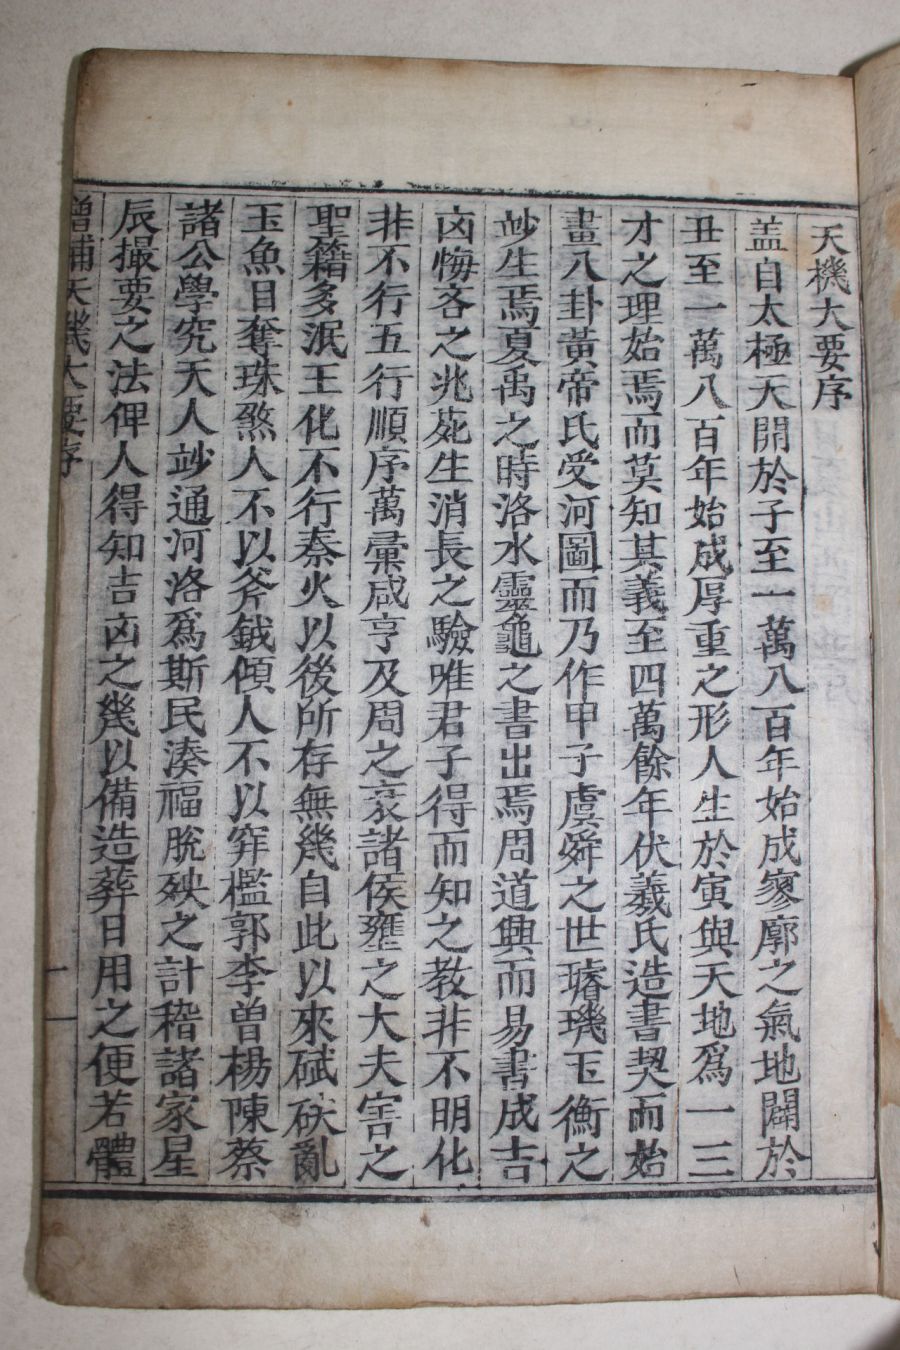 天機大要序
盖自太極天開於子至一萬八百年始成寥廓之氣地闢於
丑至一萬八百年始成厚重之形人生於寅與天地爲一三
才之理始焉而莫知其義至四萬餘年伏羲氏造書契而始
畫八卦黃帝氏受河圖而乃作甲子虞舜之世璿璣玉衡之
竗生焉夏禹之時洛水靈龜之書出焉周道興而易書成吉
凶悔吝之兆萉生消長之驗唯君子得而知之教非不明化
非不行五行順序萬彙咸亨及周之衰諸侯壅之大夫害之
聖籍多泯王化不行秦火以後所存無幾自此以來碔砆亂
玉魚目奪珠煞人不以斧鉞傾人不以穽檻郭李曾楊陳蔡
諸公學究天人竗通河洛爲斯民湊福脫殃之計稽諸家星
辰撮要之法俾人得知吉凶之幾以備造葬日用之便若體
增補天機大要序